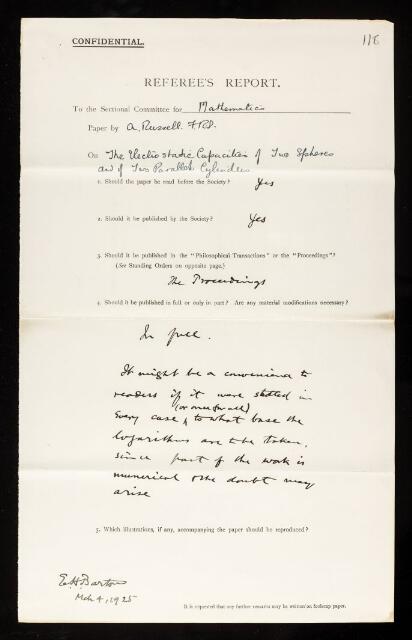 CONFIDENTIAL.
118
REFEREE'S REPORT.
To the Sectional Committee for Mathematics
Paper by A. Russell FRS.
On The Electrostatic Capacities of Two Spheres
and of Two Parallel Cylinders
1. Should the paper be read before the Society? Yes
2. Should it be published by the Society? Yes
3. Should it be published in the "Philosophical Transactions" or the "Proceedings"?
(See Standing Orders on opposite page.)
The Proceedings
4. Should it be published in full or only in part? Are any material modifications necessary?
In full.
It might be a convenience to
readers if it were stated in
(or once for all)
every case to what base the
logarithms are to be taken,
since part of the work is
numerical & the doubt may
arise
5. Which illustrations, if any, accompanying the paper should be reproduced?
E.H. Barton
Mch 4, 1925
It is requested that any further remarks may be written on foolscap paper.